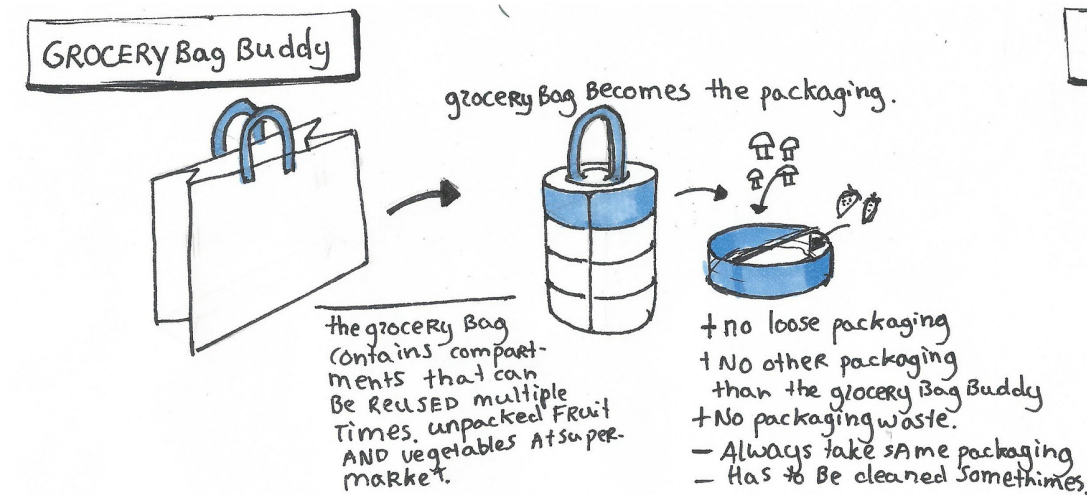 GROCERY Bag Buddy
grocery Bag Becomes the packaging.
the grocery Bag
contains compart-
ments that can
Be REUSED multiple
Times. unpacked FRuit
AND vegetables At super-
market.
+ no loose packaging
+ No other packaging
than the grocery Bag Buddy
+ No packaging waste.
- Always take same packaging
- Has to Be cleaned Somethimes.